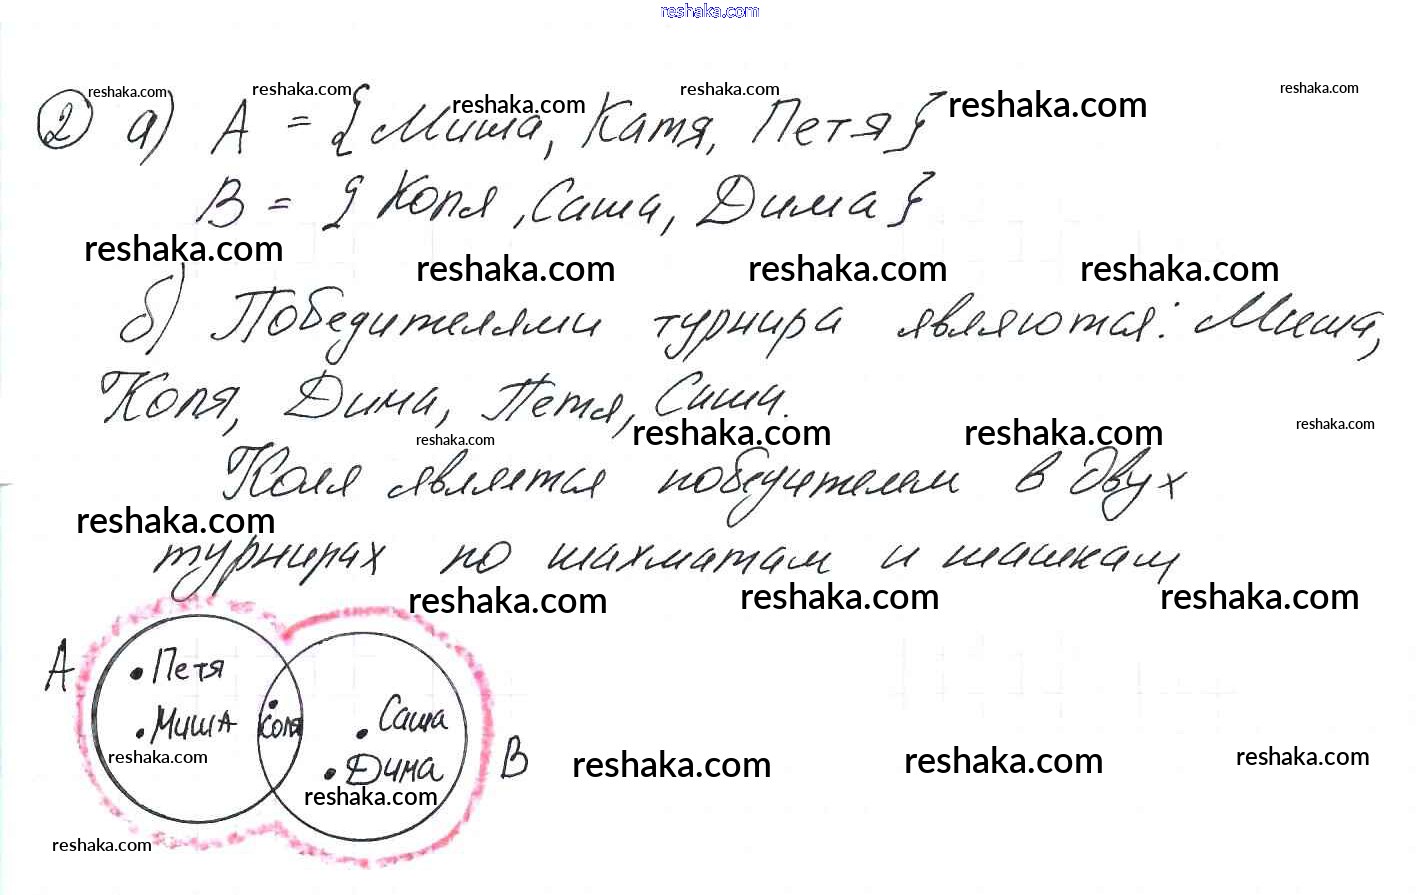 reshaka.com
reshaka.com reshaka.com reshaka.com reshaka.com reshaka.com reshaka.com
② а) A = {Миша, Катя, Петя}
B = {Коля, Саша, Дима}
reshaka.com reshaka.com reshaka.com reshaka.com
б) Победителями турнира являются: Миша,
Коля, Дима, Петя, Саша.
reshaka.com reshaka.com reshaka.com reshaka.com
Коля является победителем в двух
reshaka.com
турнирах по шахматам и шашкам
reshaka.com reshaka.com reshaka.com
A
• Петя
• Миша
• Коля
• Саша
• Дима
B
reshaka.com reshaka.com reshaka.com reshaka.com
reshaka.com
reshaka.com